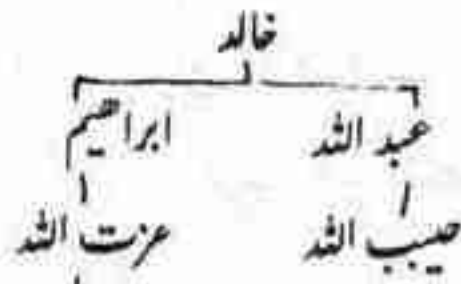 خالد
عبد اللہ ابراھیم
حبیب اللہ عزت اللہ